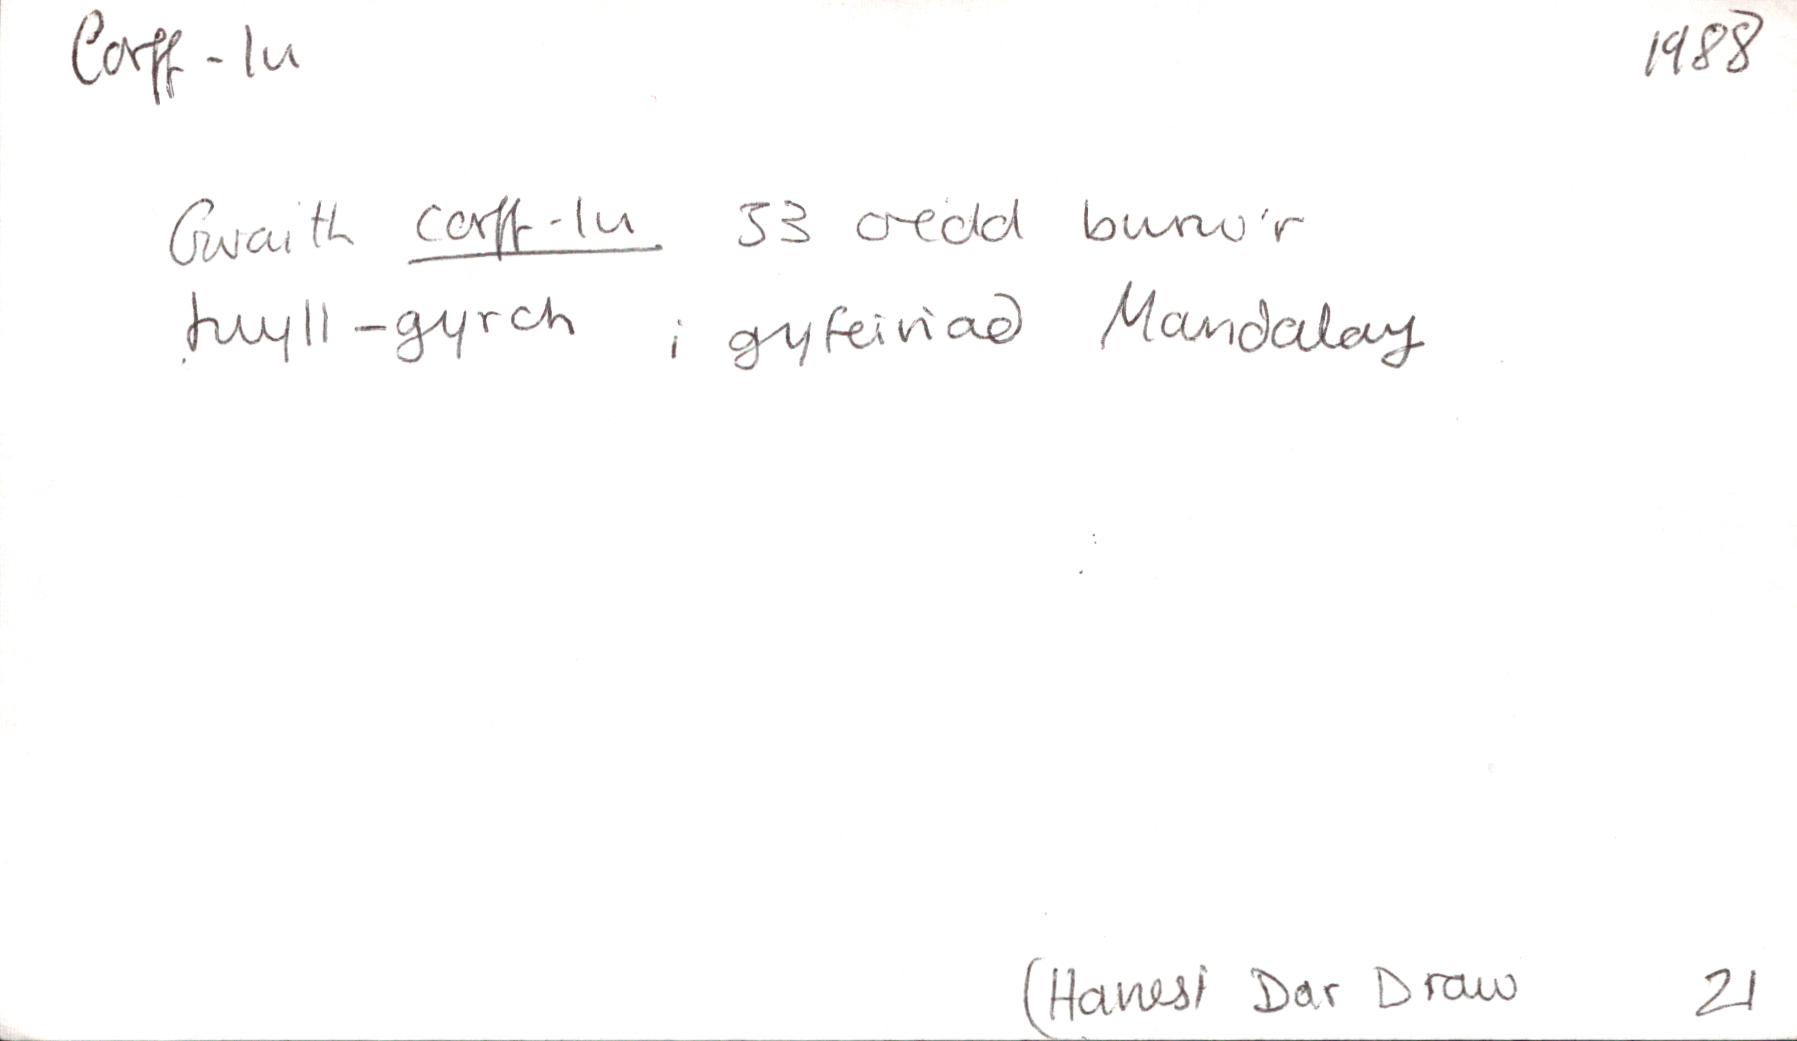 Corff-lu 1988
Gwaith corff-lu 33 oedd bwrw'r
twyll-gyrch i gyfeiriad Mandalay
(Hanesi Dar Draw 21